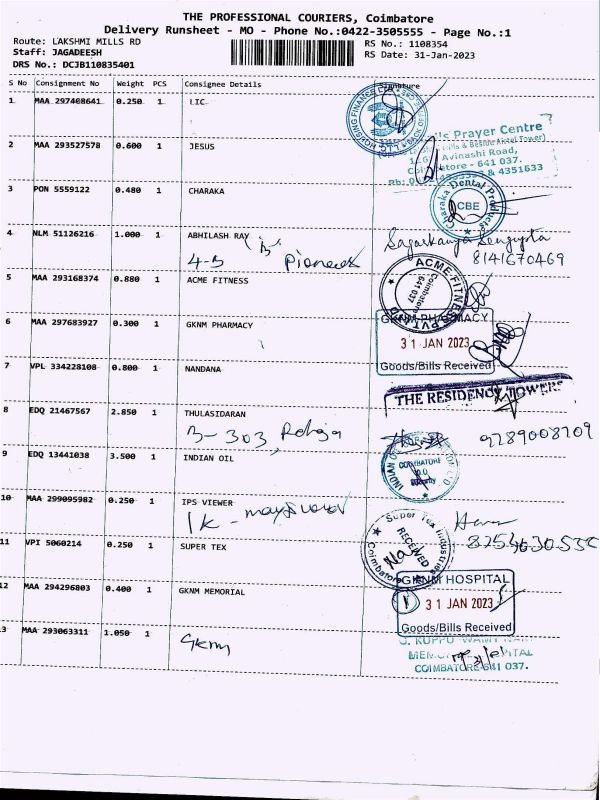 THE PROFESSIONAL COURIERS, Coimbatore
Delivery Runsheet - MO - Phone No.:0422-3505555 - Page No.:1
Route: LAKSHMI MILLS RD
Staff: JAGADEESH
DRS No.: DCJB110835401
RS No.: 1108354
RS Date: 31-Jan-2023
S No Consignment No Weight PCS Consignee Details Signature
1 MAA 297408641 0.250 1 LIC
HOUSING FINANCE
2 MAA 293527578 0.600 1 JESUS
lls Prayer Centre
Avinashi Road,
641 037.
& 4351633
3 PON 5559122 0.480 1 CHARAKA
Charaka Dental Products
CBE
4 NLM 51126216 1.000 1 ABHILASH RAY
4-B Pioneer
Sagarkanya Sengupta
8141670469
5 MAA 293168374 0.880 1 ACME FITNESS
ACME FITNESS PVT LTD
Coimbatore
641 037
6 MAA 297683927 0.300 1 GKNM PHARMACY
GKNM PHARMACY
31 JAN 2023
Goods/Bills Received
7 VPL 334228108 0.800 1 NANDANA
THE RESIDENCY TOWERS
8 EDQ 21467567 2.850 1 THULASIDARAN
B-303, Raheja
9789008209
9 EDQ 13441038 3.500 1 INDIAN OIL
INDIAN OIL
COIMBATORE
10 MAA 299095982 0.250 1 IPS VIEWER
8754630535
11 VPI 5060214 0.250 1 SUPER TEX
Super Tex Industries
RECEIVED
Coimbatore
12 MAA 294296803 0.400 1 GKNM MEMORIAL
GKNM HOSPITAL
31 JAN 2023
Goods/Bills Received
13 MAA 293063311 1.050 1
Gknm
G. KUPPUSWAMY NAIDU
MEMORIAL HOSPITAL
COIMBATORE-641 037.